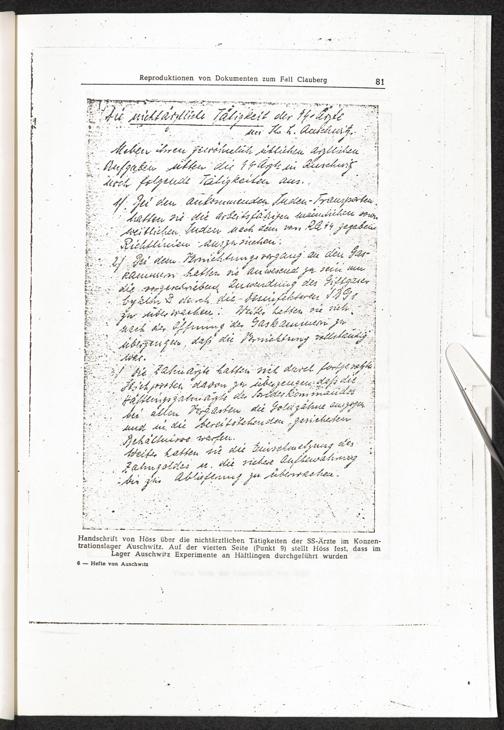 Reproduktionen von Dokumenten zum Fall Clauberg
81
Die nichtärztliche Tätigkeit der SS-Ärzte
im K. L. Auschwitz.
Neben ihren gewöhnlich üblichen ärztlichen
Aufgaben übten die SS-Ärzte in Auschwitz
noch folgende Tätigkeiten aus.
1/. Bei den ankommenden Juden-Transporten
hatten sie die arbeitsfähigen männlichen u.
weiblichen Juden nach den vom gegebenen
Richtlinien auszusuchen.
2/. Bei dem Vernichtungsvorgang an den Gas-
kammern hatten sie anwesend zu sein um
die vorgeschriebene Anwendung des Giftgases
Cyclon B durch die Desinfektoren
zu überwachen. Weiter hatten sie sich
nach der Öffnung der Gaskammern zu
überzeugen, daß die Vernichtung vollständig
war.
3/. Die Zahnärzte hatten sich durch fortgesetzte
Stichproben davon zu überzeugen daß die
Häftlingszahnärzte des Sonderkommandos
bei allen Vergasten die Goldzähne auszogen
und in die bereitstehenden gesicherten
Behältnisse warfen.
Weiter hatten sie die Einschmelzung des
Zahngoldes u. die sichere Aufbewahrung
bis zur Ablieferung zu überwachen.
Handschrift von Höss über die nichtärztlichen Tätigkeiten der SS-Ärzte im Konzen-
trationslager Auschwitz. Auf der vierten Seite (Punkt 9) stellt Höss fest, dass im
Lager Auschwitz Experimente an Häftlingen durchgeführt wurden
6 — Hefte von Auschwitz